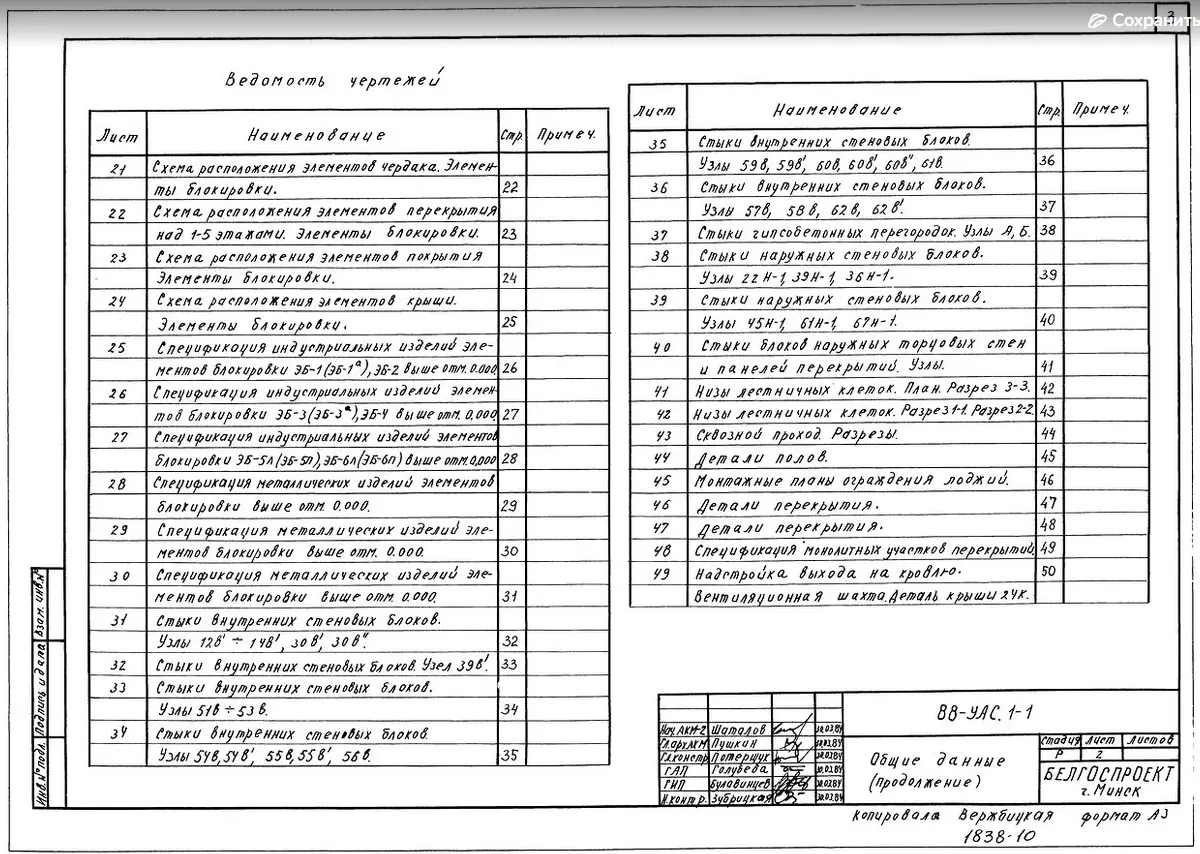 2
Сохранить
Ведомость чертежей
Лист Наименование Стр. Примеч.
21 Схема расположения элементов чердака. Элемен-
ты блокировки. 22
22 Схема расположения элементов перекрытия
над 1-5 этажами. Элементы блокировки. 23
23 Схема расположения элементов покрытия
Элементы блокировки. 24
24 Схема расположения элементов крыши.
Элементы блокировки. 25
25 Спецификация индустриальных изделий эле-
ментов блокировки ЭБ-1(ЭБ-1ᵃ), ЭБ-2 выше отм. 0.000 26
26 Спецификация индустриальных изделий элемен-
тов блокировки ЭБ-3(ЭБ-3ᵃ), ЭБ-4 выше отм. 0.000. 27
27 Спецификация индустриальных изделий элементов
блокировки ЭБ-5л(ЭБ-5п), ЭБ-6л(ЭБ-6п) выше отм. 0.000 28
28 Спецификация металлических изделий элементов
блокировки выше отм. 0.000. 29
29 Спецификация металлических изделий эле-
ментов блокировки выше отм. 0.000. 30
30 Спецификация металлических изделий эле-
ментов блокировки выше отм. 0.000. 31
31 Стыки внутренних стеновых блоков.
Узлы 12в' ÷ 14в', 30в', 30в". 32
32 Стыки внутренних стеновых блоков. Узел 39в'. 33
33 Стыки внутренних стеновых блоков.
Узлы 51в ÷ 53в. 34
34 Стыки внутренних стеновых блоков
Узлы 54в, 54в', 55в, 55в', 56в. 35
Лист Наименование Стр. Примеч.
35 Стыки внутренних стеновых блоков.
Узлы 59в, 59в', 60в, 60в', 60в", 61в. 36
36 Стыки внутренних стеновых блоков.
Узлы 57в, 58в, 62в, 62в'. 37
37 Стыки гипсобетонных перегородок. Узлы А, Б. 38
38 Стыки наружных стеновых блоков.
Узлы 22Н-1, 39Н-1, 36Н-1. 39
39 Стыки наружных стеновых блоков.
Узлы 45Н-1, 61Н-1, 67Н-1. 40
40 Стыки блоков наружных торцовых стен
и панелей перекрытий. Узлы. 41
41 Низы лестничных клеток. План. Разрез 3-3. 42
42 Низы лестничных клеток. Разрез 1-1. Разрез 2-2. 43
43 Сквозной проход. Разрезы. 44
44 Детали полов. 45
45 Монтажные планы ограждения лоджий. 46
46 Детали перекрытия. 47
47 Детали перекрытия. 48
48 Спецификация монолитных участков перекрытий. 49
49 Надстройка выхода на кровлю. 50
Вентиляционная шахта. Деталь крыши 24к.
Взам. инв.№
Подпись и дата
Инв.№ подл.
Нач.АКМ-2 Шаталов 30.03.84
Гл.арх.АКМ Пушкин 30.03.84
Гл.констр. Потерщук 30.03.84
ГАП Голубева 30.03.84
ГИП Булавинцев 30.03.84
Н.контр. Зубрицкая 30.03.84
88-УАС. 1-1
Общие данные
(продолжение)
стадия лист листов
Р 2
БЕЛГОСПРОЕКТ
г. Минск
копировала Вержбицкая формат А3
1838-10